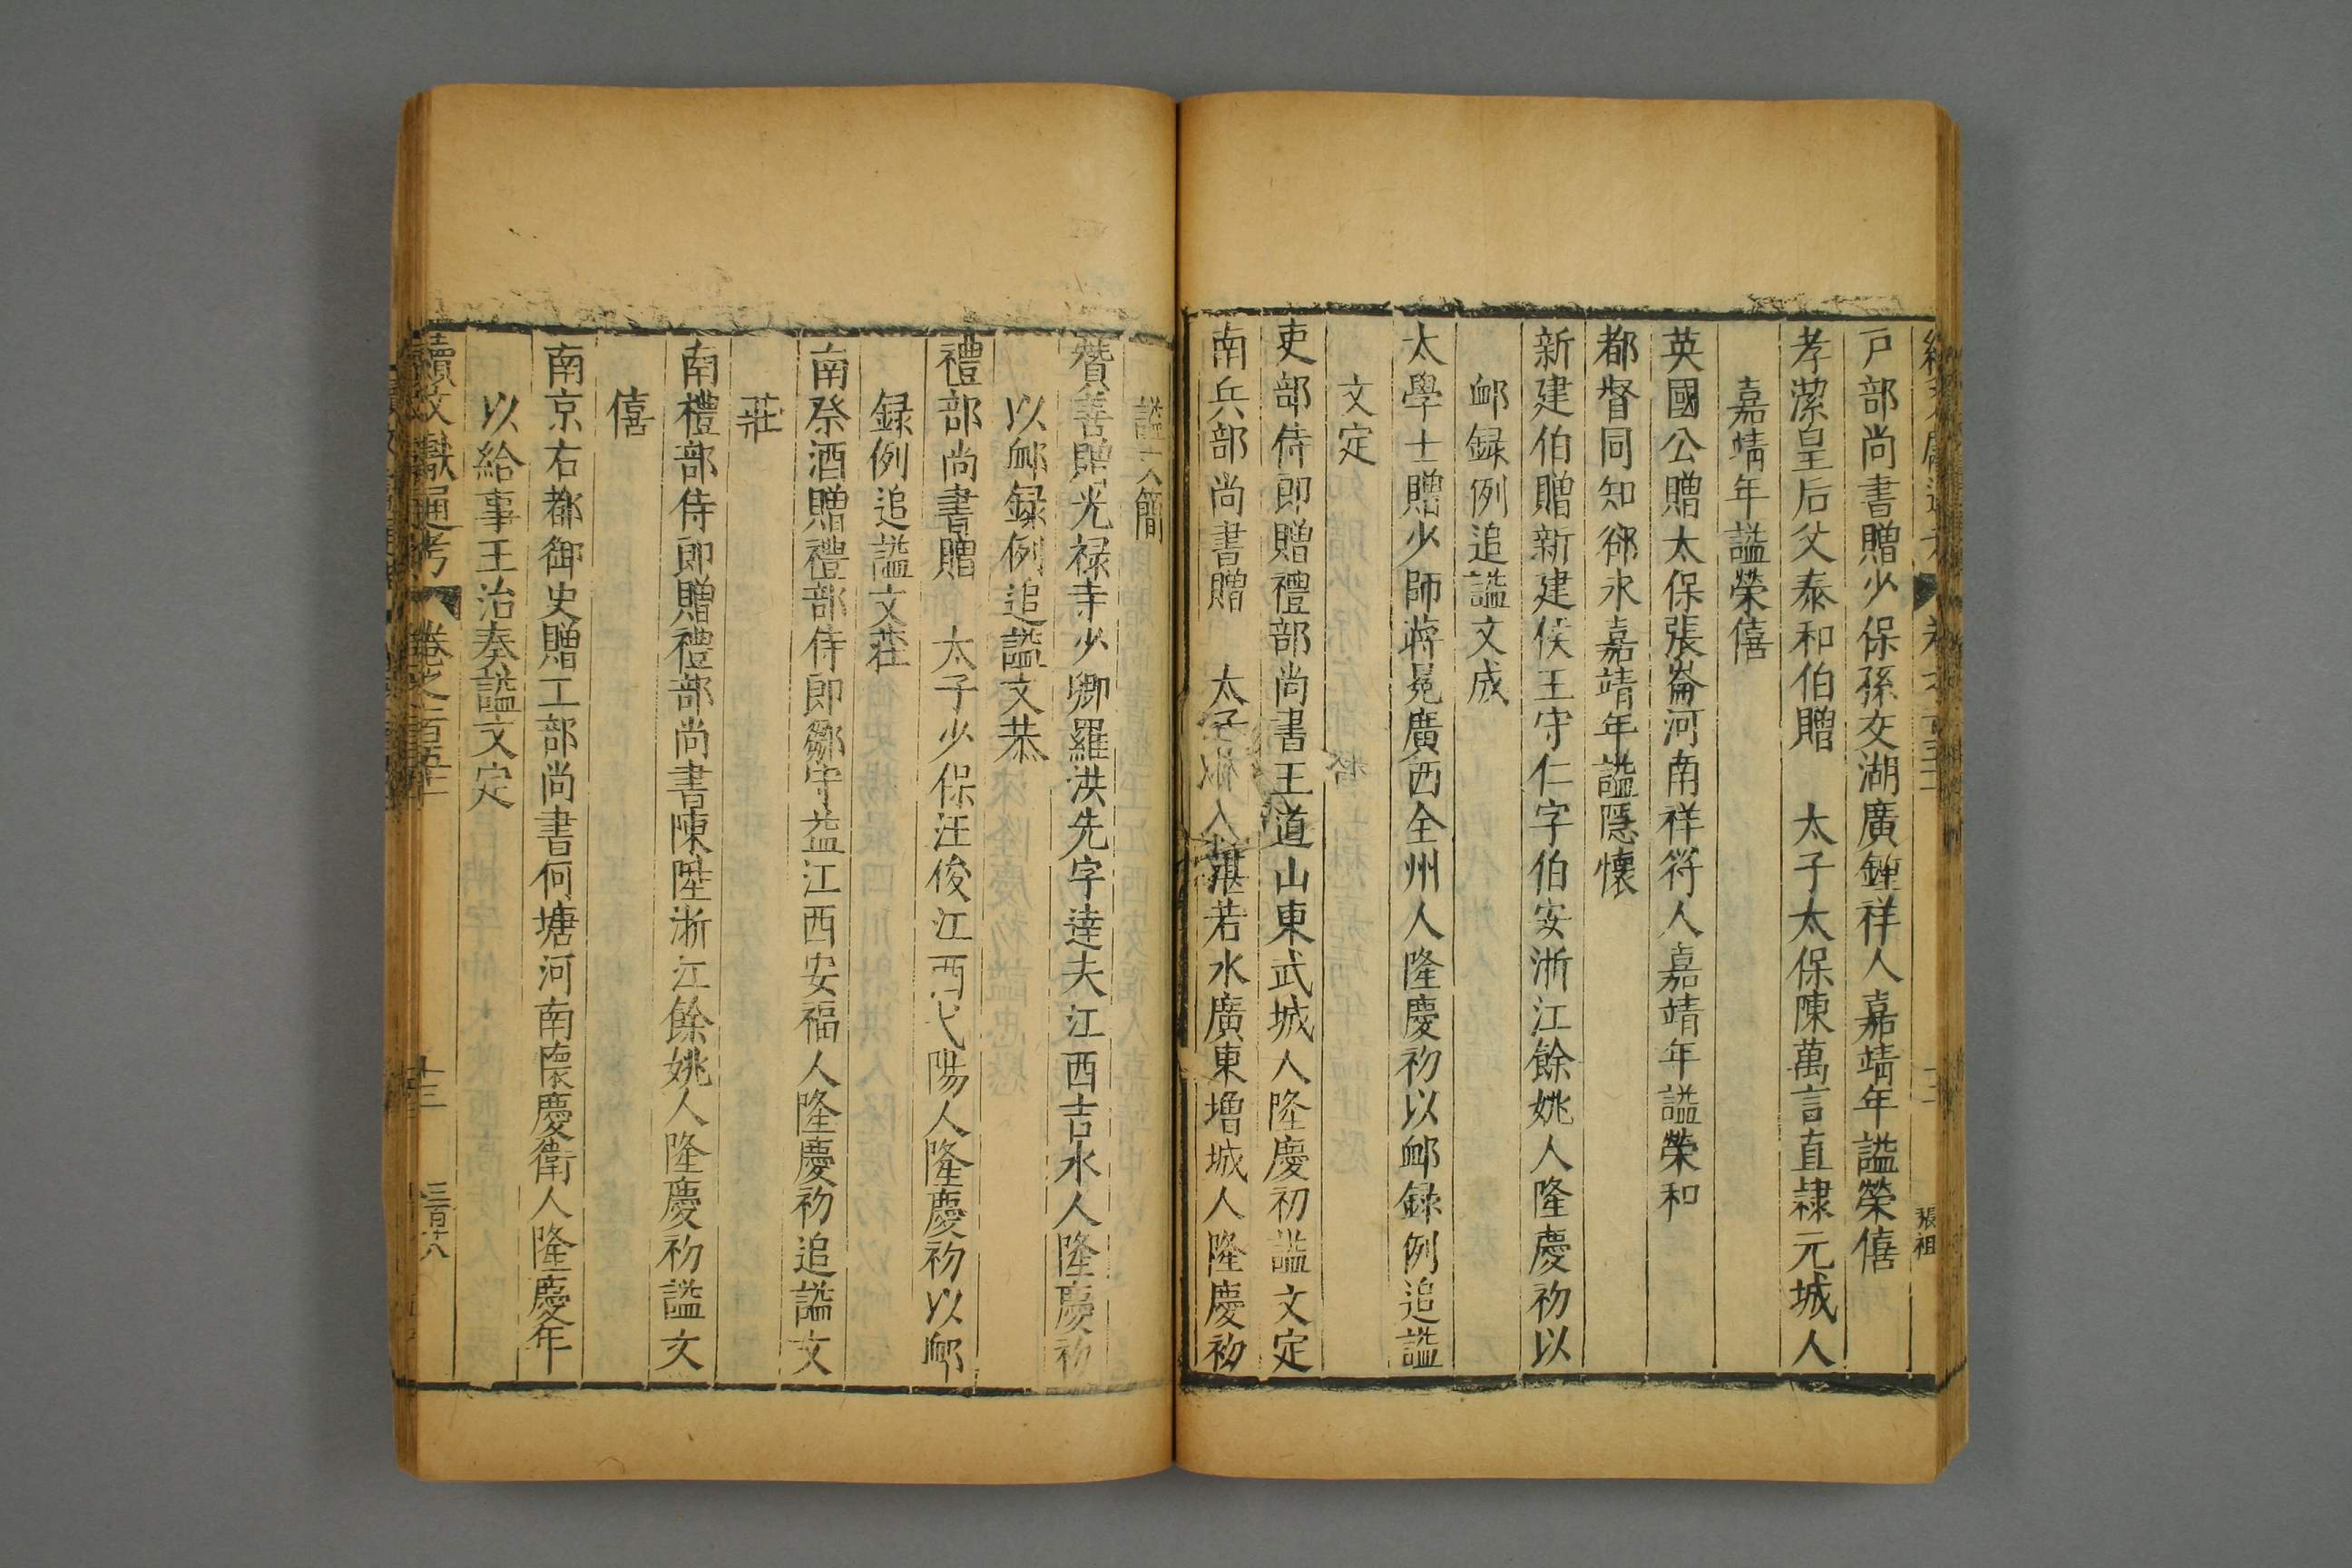 戶部尚書贈少保孫交湖廣鍾祥人嘉靖年謚榮僖
孝潔皇后父泰和伯贈　太子太保陳萬言直隸元城人
嘉靖年謚榮僖
英國公贈太保張崙河南祥符人嘉靖年謚榮和
都督同知郤永嘉靖年謚隱懷
新建伯贈新建侯王守仁字伯安浙江餘姚人隆慶初以
䘏録例追謚文成
太學士贈少師蔣冕廣西全州人隆慶初以䘏録例追謚
文定
吏部侍郎贈禮部尚書王道山東武城人隆慶初謚文定
南兵部尚書贈　太子 湛若水廣東增城人隆慶初
謚文簡
贊善贈光禄寺少卿羅洪先字達夫江西吉水人隆慶初
以䘏録例追謚文恭
禮部尚書贈　太子少保汪俊江西弋陽人隆慶初以䘏
録例追謚文莊
南祭酒贈禮部侍郎鄒守益江西安福人隆慶初追謚文
莊
南禮部侍郎贈禮部尚書陳陞浙江餘姚人隆慶初謚文
僖
南京右都御史贈工部尚書何塘河南懷慶衛人隆慶年
以給事王治奏謚文定
續文獻通考　卷之一百五十二　十三　三百十八
張祖